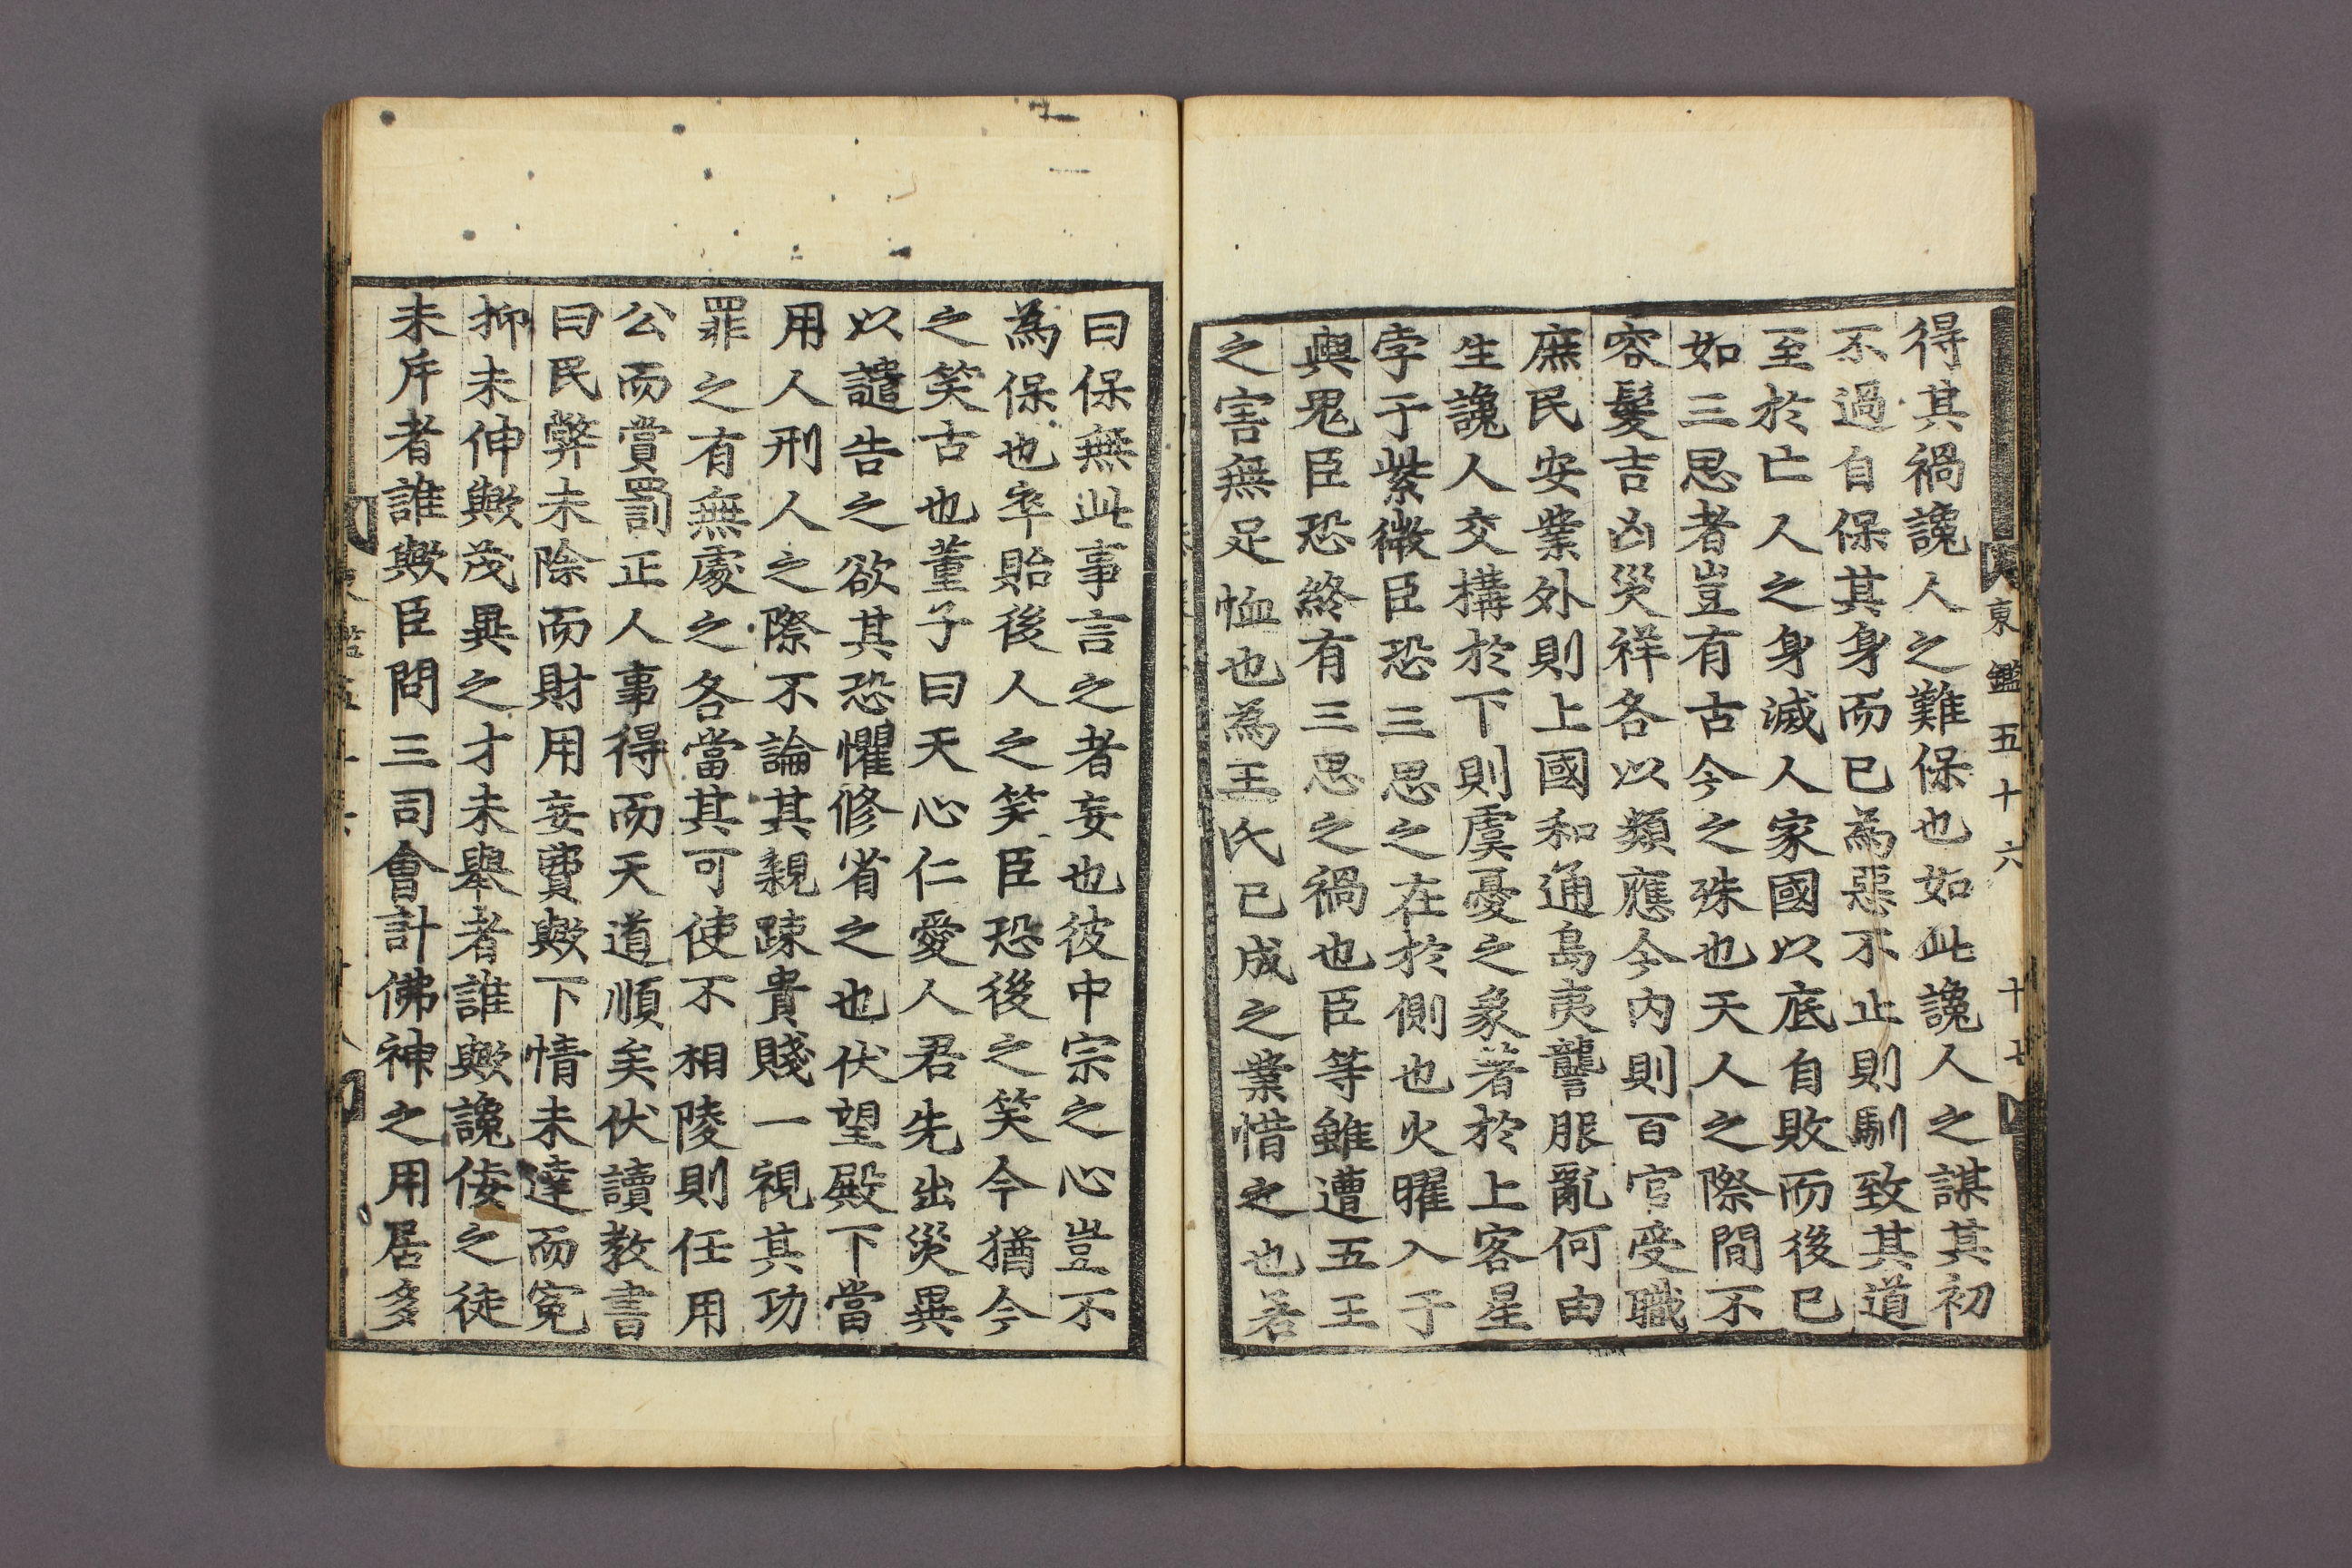 東鑑五十六 十七
得其禍讒人之難保也如此讒人之謀其初
不過自保其身而已為惡不止則馴致其道
至於亡人之身滅人家國以底自敗而後已
如三思者豈有古今之殊也天人之際間不
容髮吉凶災祥各以類應今內則百官受職
庶民安業外則上國和通島夷讋服亂何由
生讒人交構於下則虞憂之象著於上客星
孛于紫微臣恐三思之在於側也火曜入于
輿鬼臣恐終有三思之禍也臣等雖遭五王
之害無足恤也為王氏已成之業惜之也若
曰保無此事言之者妄也彼中宗之心豈不
為保也卒貽後人之笑臣恐後之笑今猶今
之笑古也董子曰天心仁愛人君先出災異
以譴告之欲其恐懼修省之也伏望殿下當
用人刑人之際不論其親踈貴賤一視其功
罪之有無處之各當其可使不相陵則任用
公而賞罰正人事得而天道順矣伏讀教書
曰民弊未除而財用妄費歟下情未達而冤
抑未伸歟茂異之才未舉者誰歟讒佞之徒
未斥者誰歟臣問三司會計佛神之用居多